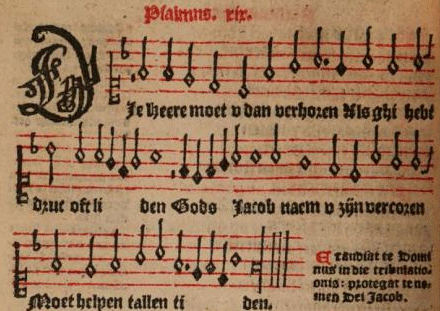 Psalmus. xix.
DJe Heere moet v dan verhoren Als ghi hebt
druc oft li den Gods Jacob naem v zijn vercoren
Exaudiat te Domi
nus in die tribulati-
onis: protegat te no-
men Dei Jacob.
Moet helpen tallen ti den.